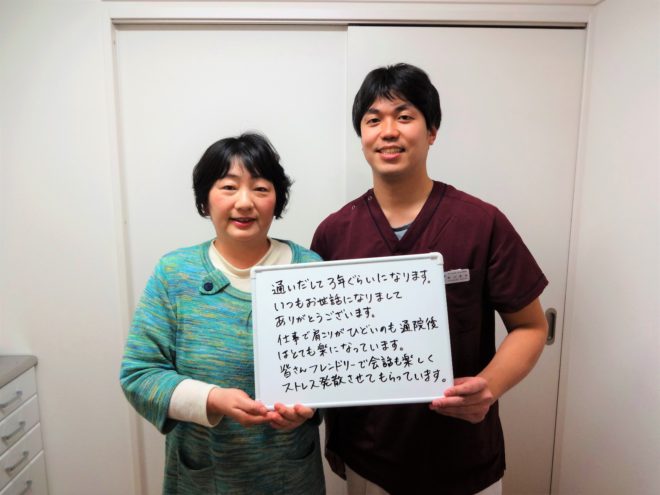 通いだして3年ぐらいになります。
いつもお世話になりまして
ありがとうございます。
仕事で肩こりがひどいのも通院後
はとても楽になっています。
皆さんフレンドリーで会話も楽しく
ストレス発散させてもらっています。